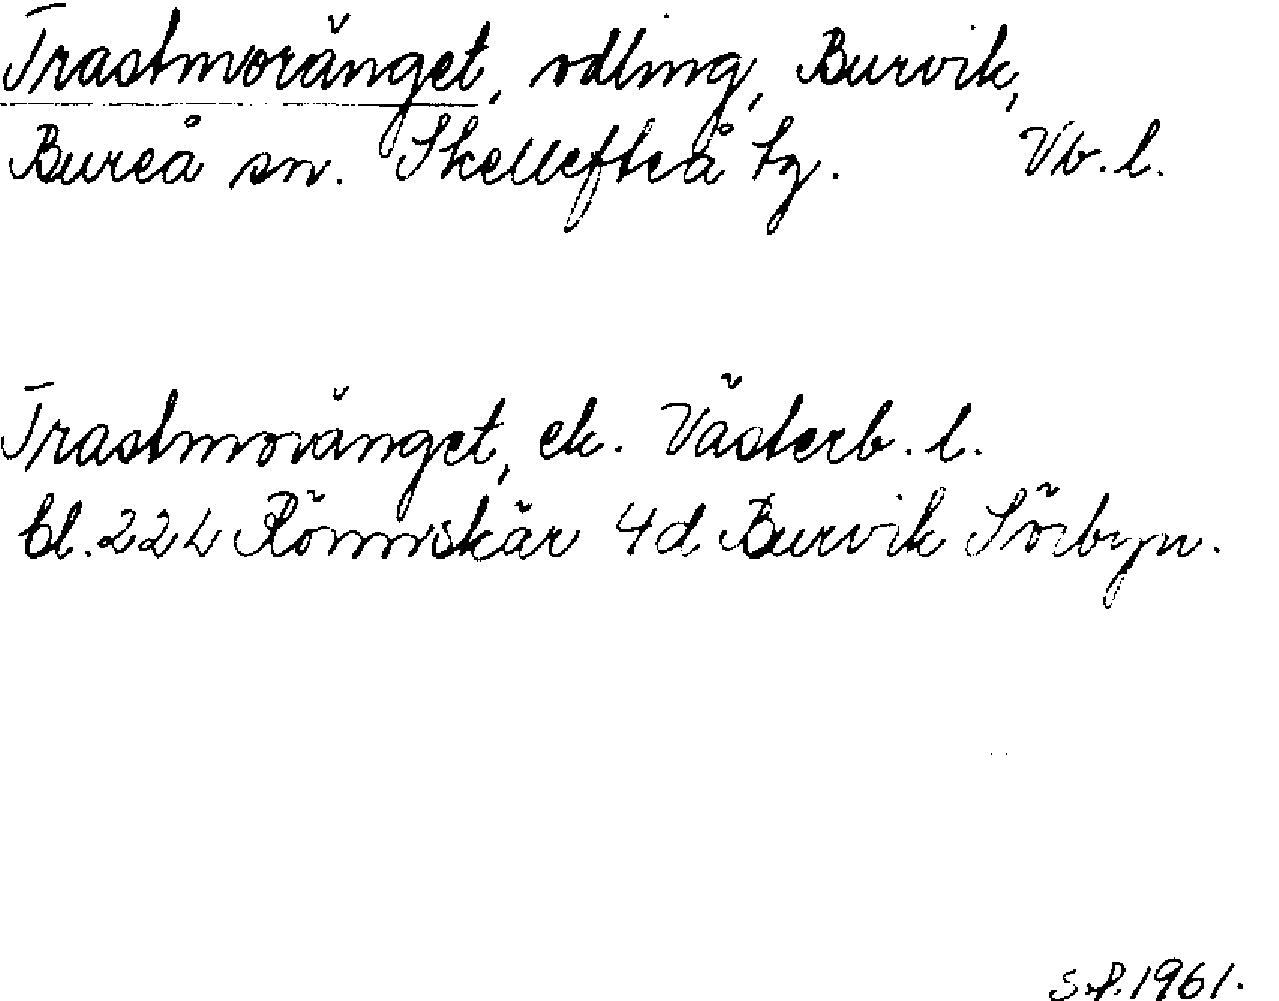 Trastmoränget, odling, Burvik,
Bureå sn. Skellefteå tg. Vb. l.
Trastmoränget, ek. Västerb. l.
bl. 22L Rönnskär 4d Burvik Sörbyn.
S.P. 1961.